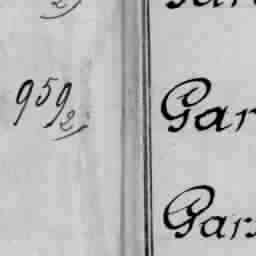 959 2)
Gar
Gars